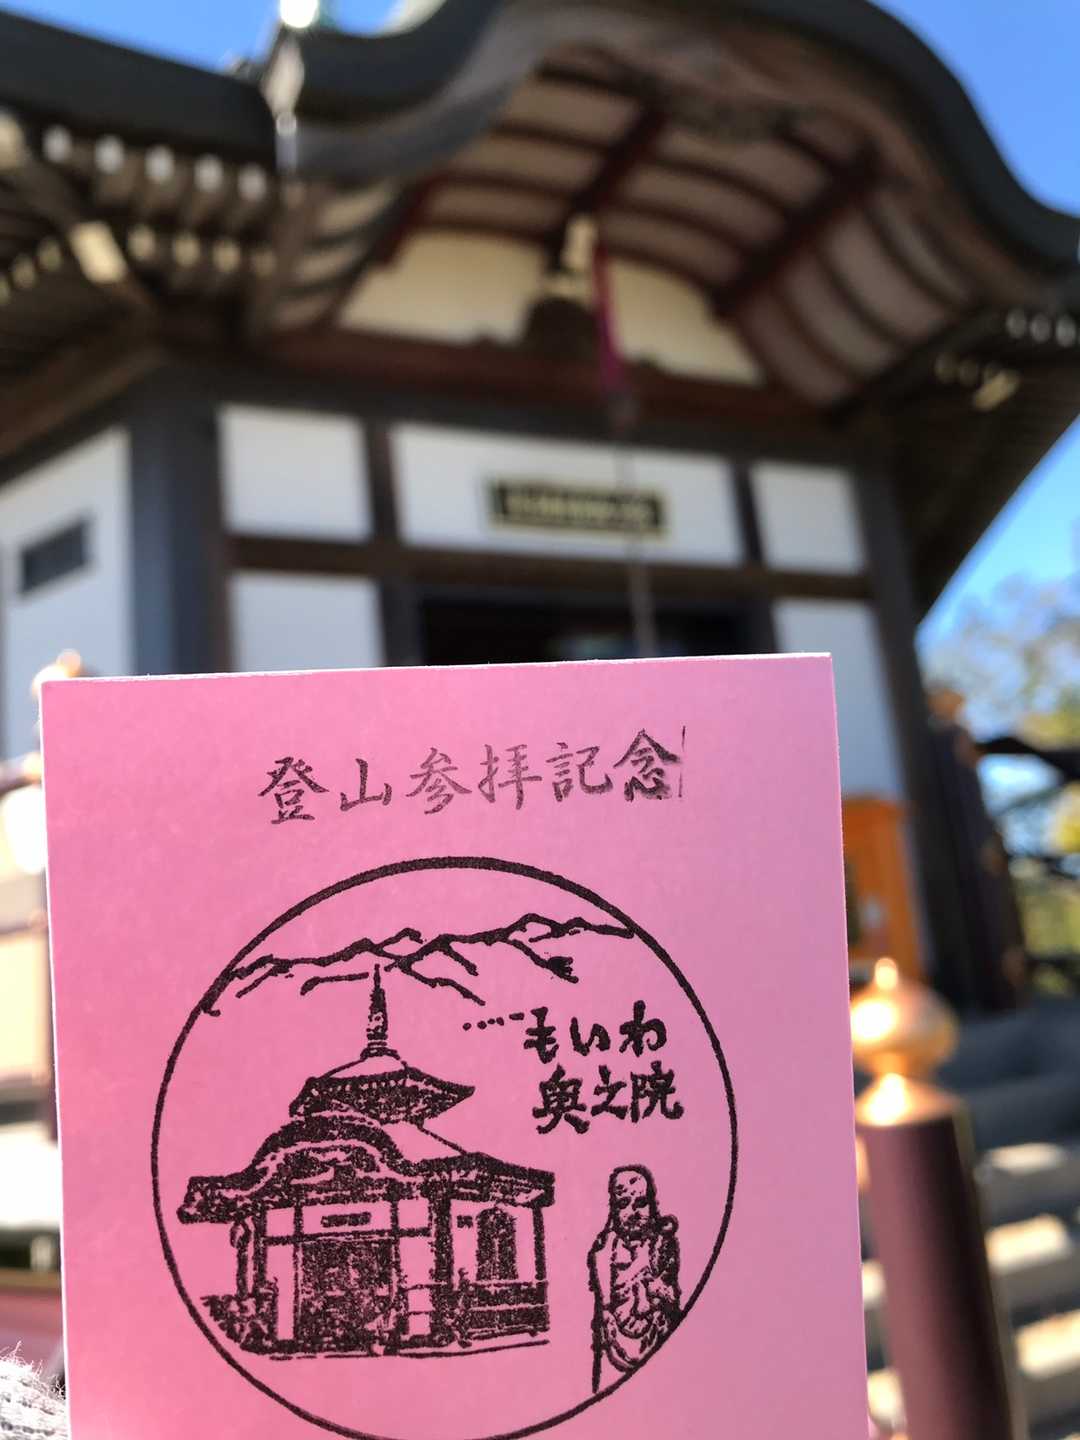 登山参拝記念
もいわ
奥之院